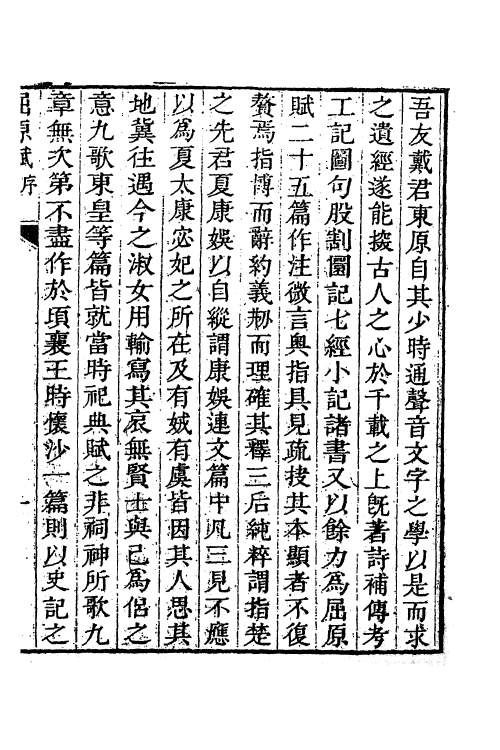 吾友戴君東原自其少時通聲音文字之學以是而求
之遺經遂能探古人之心於千載之上旣著詩補傳考
工記圖句股割圜記七經小記諸書又以餘力爲屈原
賦二十五篇作注微言奧指具見疏抉其本顯者不復
贅焉指博而辭約義刱而理確其釋三后純粹謂指楚
之先君夏康娛以自縱謂康娛連文篇中凡三見不應
以爲夏太康宓妃之所在及有娀有虞皆因其人思其
地冀往遇今之淑女用輸寫其哀無賢士與己爲侶之
意九歌東皇等篇皆就當時祀典賦之非祠神所歌九
章無次第不盡作於頃襄王時懷沙一篇則以史記之
屈原賦序
一